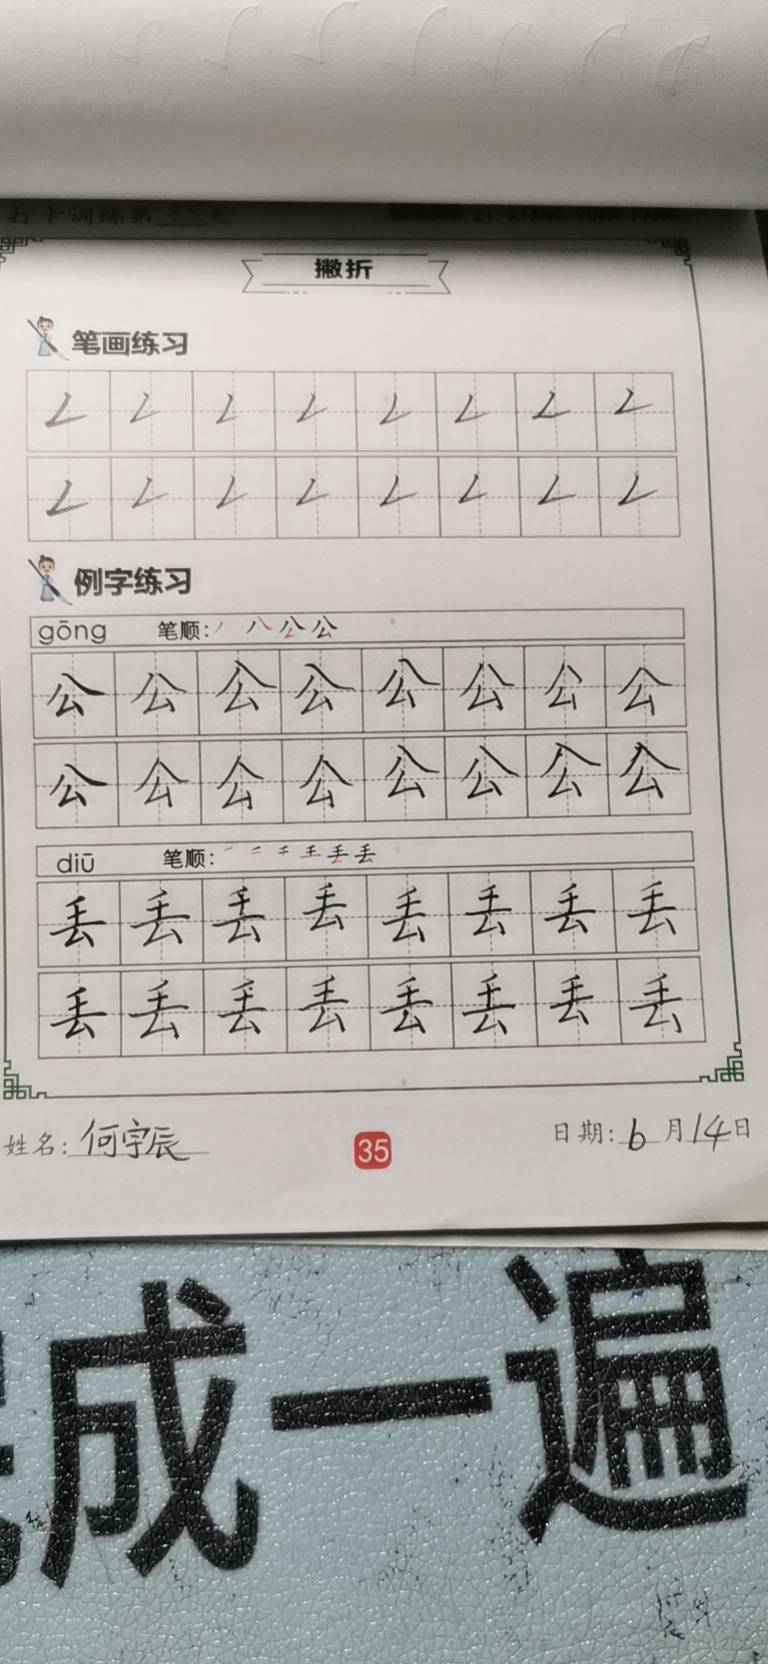 打卡训练第35天
撇折
笔画练习
𠃋 𠃋 𠃋 𠃋 𠃋 𠃋 𠃋 𠃋
𠃋 𠃋 𠃋 𠃋 𠃋 𠃋 𠃋 𠃋
例字练习
gōng 笔顺: 丿 八 公 公
公 公 公 公 公 公 公 公
公 公 公 公 公 公 公 公
diū 笔顺: 一 二 千 王 丢 丢
丢 丢 丢 丢 丢 丢 丢 丢
丢 丢 丢 丢 丢 丢 丢 丢
姓名: 何宇辰 35 日期: 6月14日
成一遍